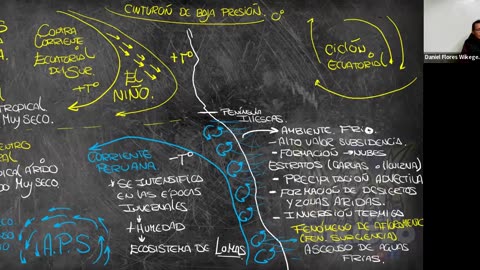 CINTURÓN DE BAJA PRESIÓN. 0°
CONTRA
CORRIENTE
ECUATORIAL
DEL SUR.
+T°
EL
NIÑO.
+T°
CICLÓN
ECUATORIAL
Daniel Flores Wikege
PENÍNSULA
ILLESCAS.
TROPICAL
MUY SECO.
CENTRO
TROPICAL ÁRIDO
MUY SECO.
CORRIENTE
PERUANA.
-T°
* SE INTENSIFICA
EN LAS ÉPOCAS
INVERNALES
+HUMEDAD
ECOSISTEMA DE LOMAS.
A.P.S
AMBIENTE FRIO.
- ALTO VALOR SUBSIDENCIA.
- FORMACIÓN NUBES
ESTRATOS (GARÚAS
- PRECIPITACIÓN ADVECTIVA
- FORMACIÓN DE DESIERTOS
Y ZONAS ÁRIDAS.
- INVERSIÓN TERMICA
FENÓMENO DE AFLORAMIENTO
(FEN. SURGENCIA)
ASCENSO DE AGUAS
FRIAS.